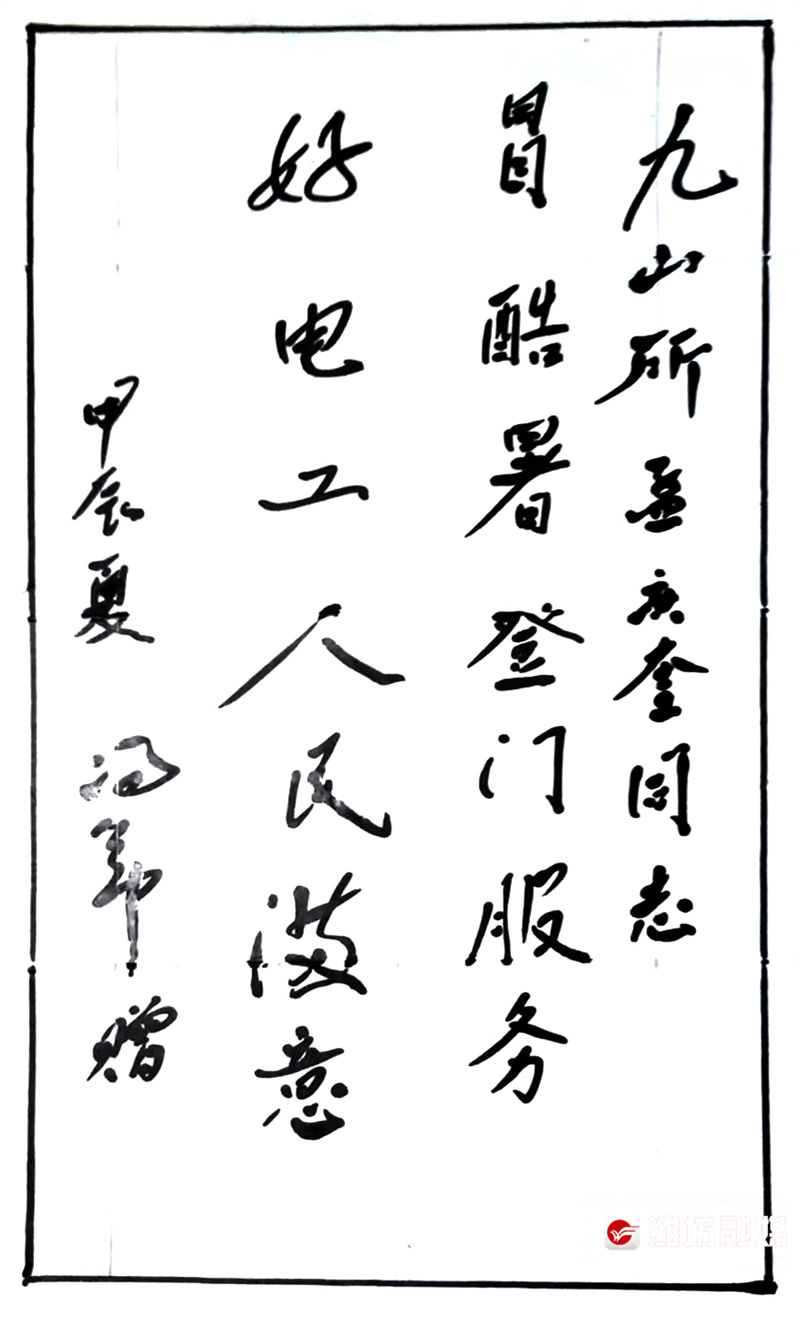 九山所孟庆奎同志
冒酷暑登门服务
好电工人民满意
甲辰夏 冯军赠
潍坊融媒